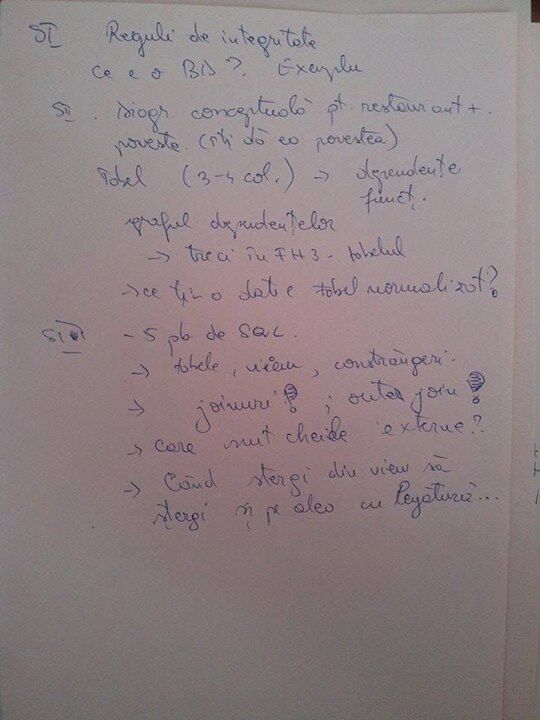 SI Reguli de integritate
Ce e o BD? Exemplu
SII. Diagr. conceptuală pt. restaurant +
poveste. (îți dă ea povestea)
Tabel (3-4 col.) → dependențe
funcț.
graful dependențelor
→ treci în FN3 - tabelul
→ ce ții o dată tabel normalizat?
SIII - 5 pb. de SQL.
→ tabele, view, constrângeri.
→ joinuri! ; outer join!
→ care sunt cheile externe?
→ Când ștergi din view să
ștergi și pe alea cu legătură...